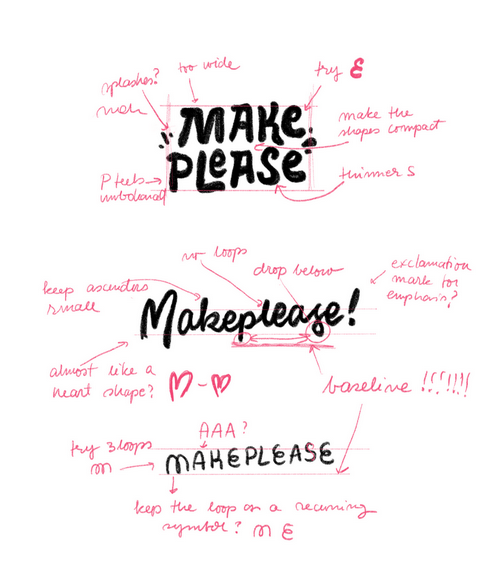 splashes?
too wide
try E
MAKE
make the
shapes compact
PLEASE
P feels
unbalanced
thinner s
no loops
drop below
exclamation
mark for
emphasis?
keep ascenders
small
Makeplease!
almost like a
heart shape?
baseline !!!!!!!
AAA?
try 3 loops
m
MAKEPLEASE
keep the loop as a recurring
symbol? m E